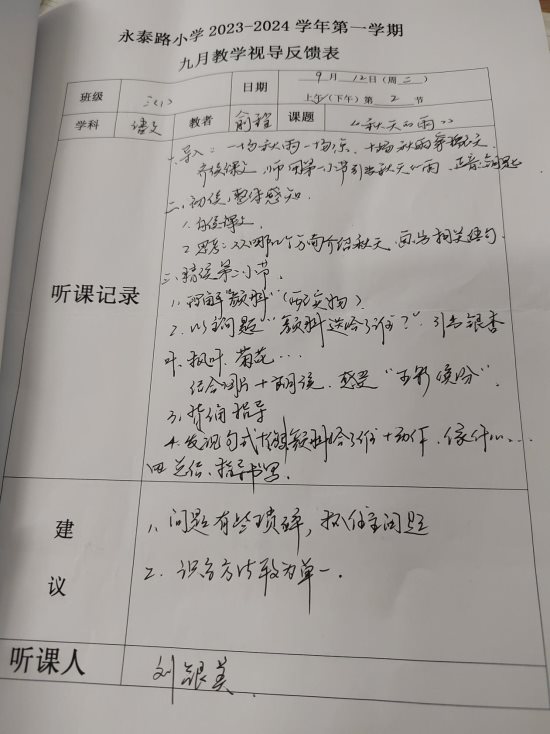 永泰路小学2023-2024学年第一学期
九月教学视导反馈表
班级 三(1) 日期 9月12日(周二)
上午(下午)第2节
学科 语文 教者 俞程 课题 《秋天的雨》
听课记录
一、导入：一场秋雨一场凉，十场秋雨穿棉衣
齐读课文，师用第一小节引出秋天的雨
二、初读，整体感知
1. 自读课文
2. 思考：从哪几个方面介绍秋天，画出相关语句
三、精读第二小节
1. 理解“颜料”（实物）
2. 以主问题“颜料送给了谁？”引出银杏
叶、枫叶、菊花…
结合图片+朗读，感受“五彩缤纷”
3. 背诵指导
4. 发现句式 颜料给了谁+动作，像什么…
四、总结、指导书写
建议
1、问题有些琐碎，抓住主问题
2. 识字方法较为单一.
听课人 刘银美